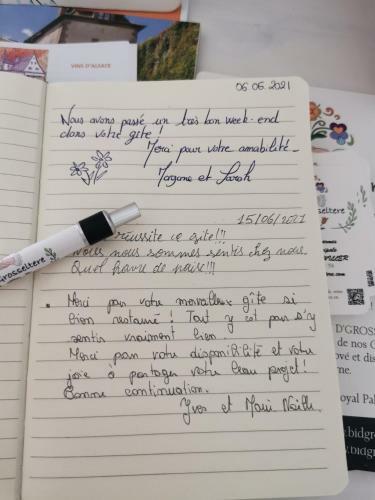 VINS D'ALSACE
06.06.2021
Nous avons passé un très bon week-end
dans votre gîte!
Merci pour votre amabilité-
Morgane et Sarah
15/06/2021
réussite ce gîte!!!
Nous nous sommes sentis chez nous.
Quel havre de paix!!!
Merci pour votre merveilleux gîte si
bien restauré! Tout y est pour s'y
sentir vraiment bien.
Merci pour votre disponibilité et votre
joie à partager votre beau projet!
Bonne continuation.
Yves et Marie Noëlle
D'GROS
de nos C
oyal Pal
w.bidg